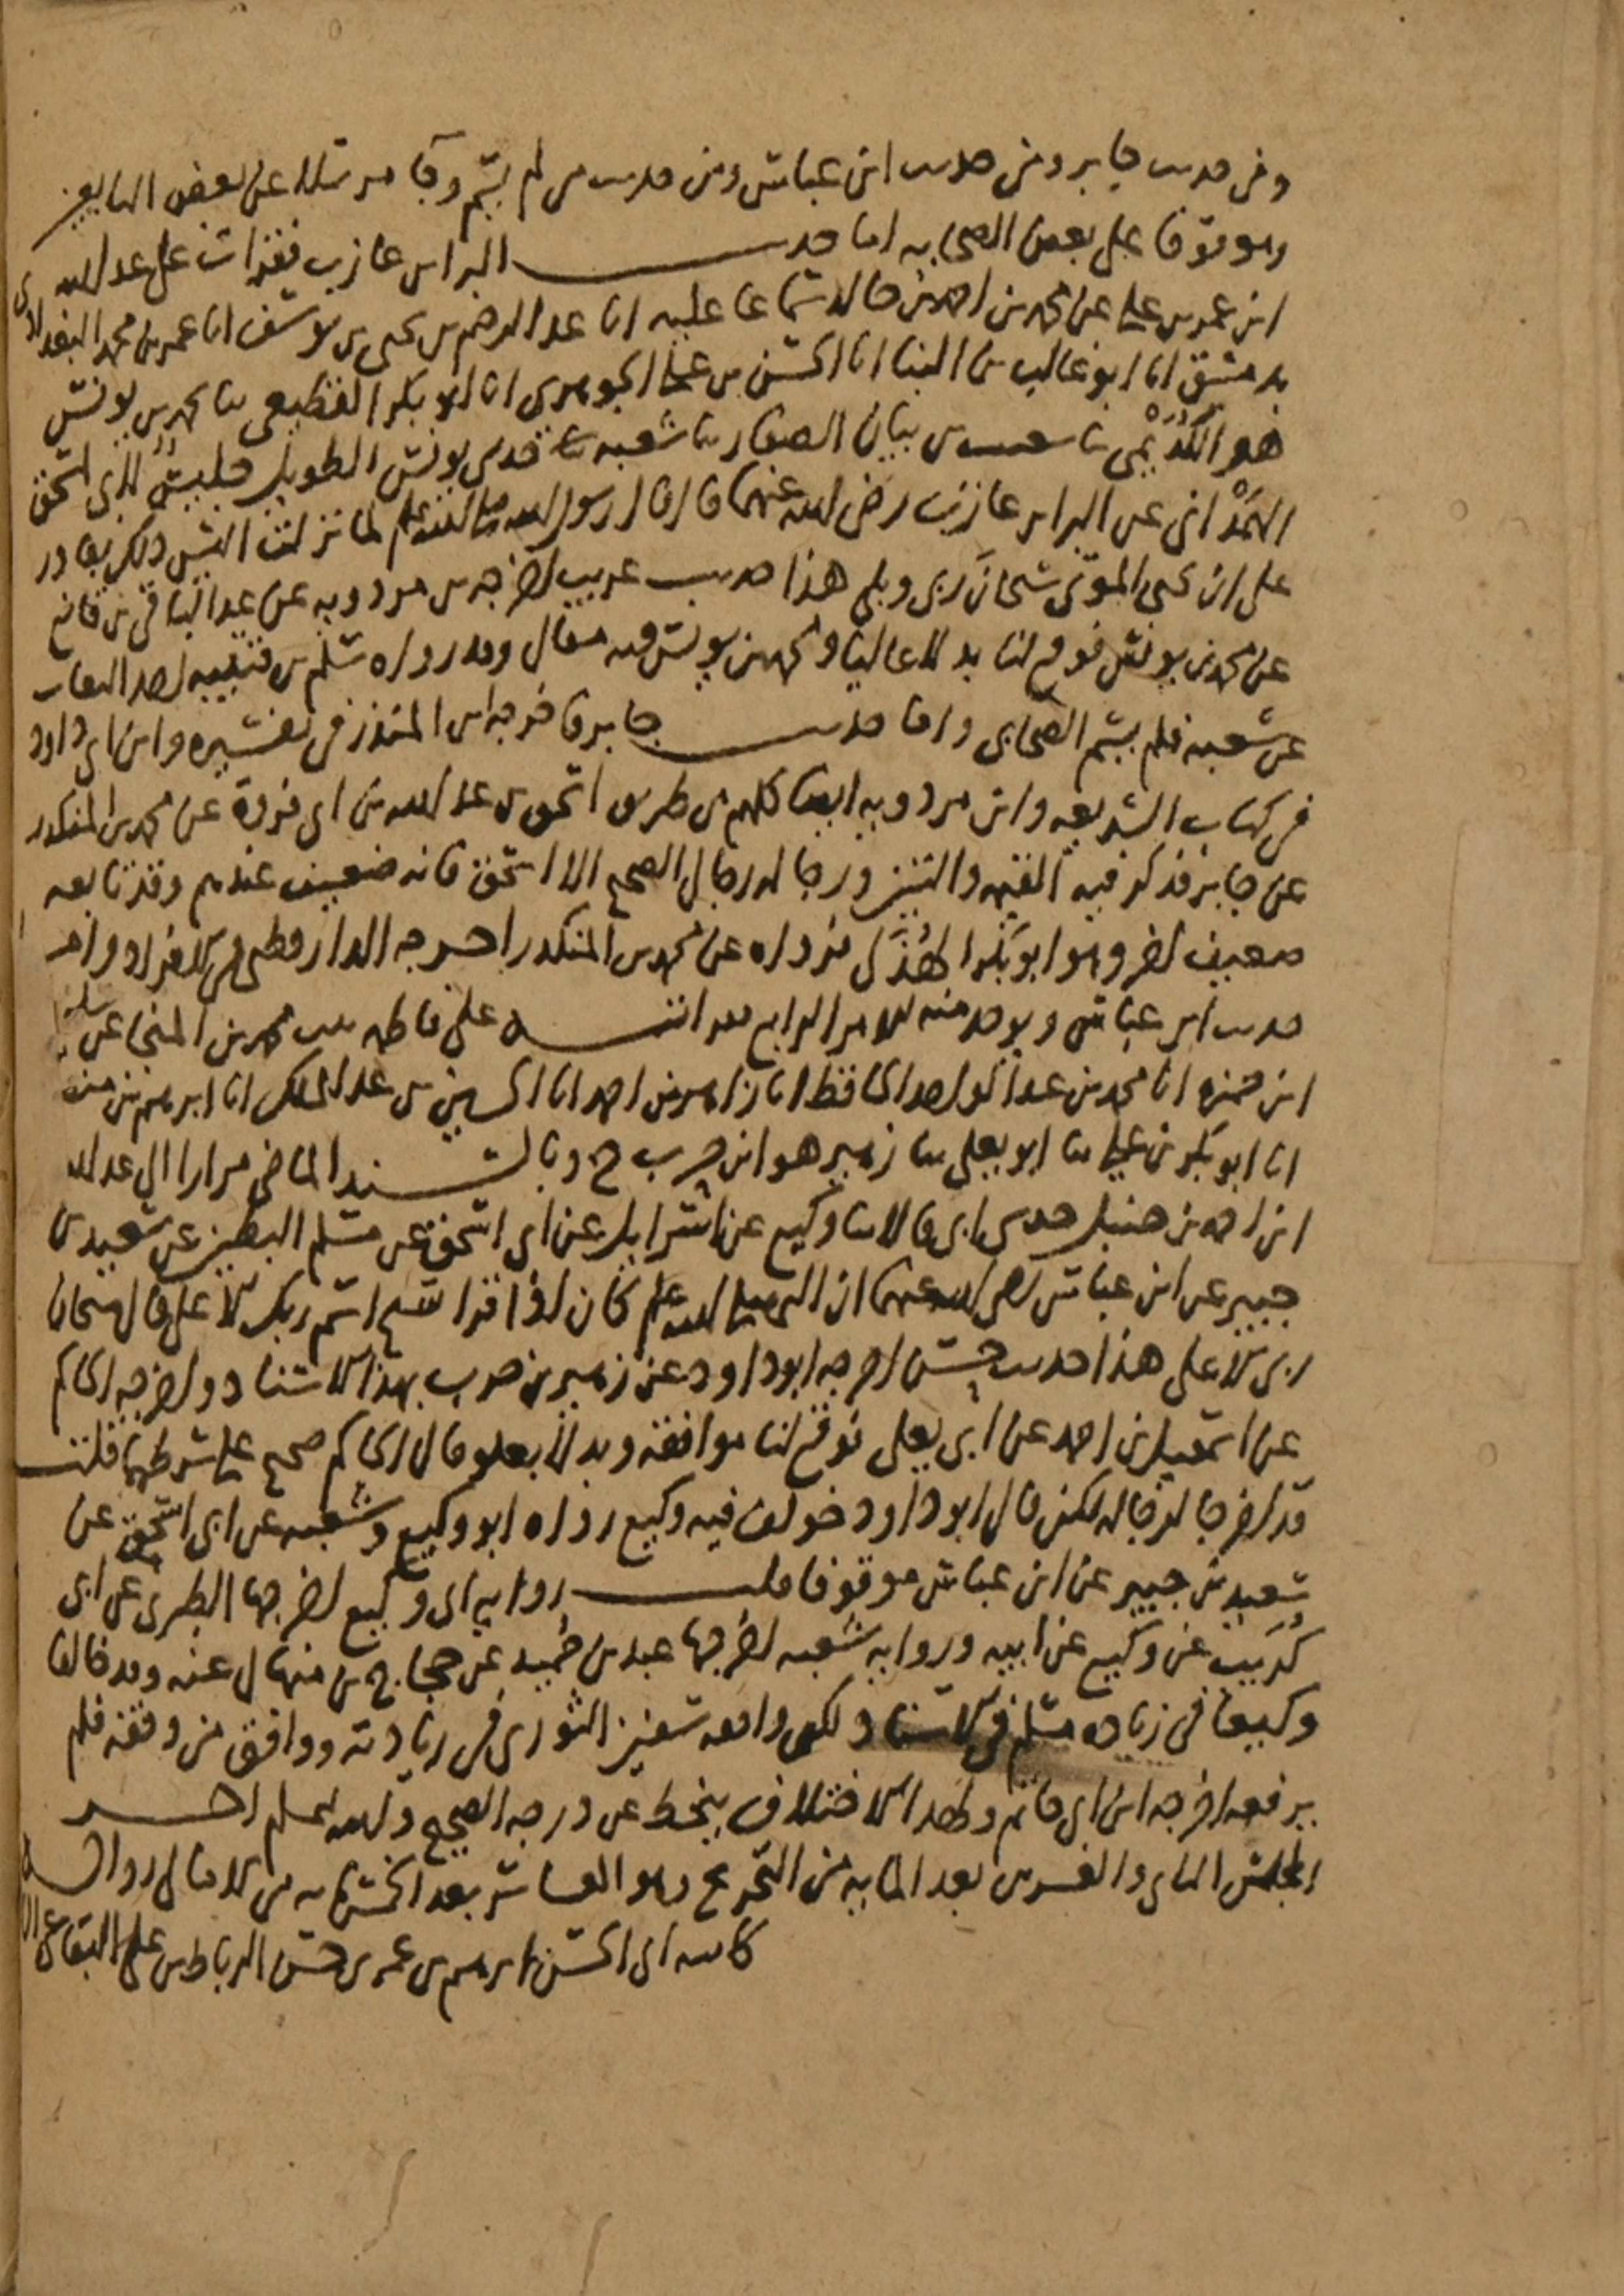 ومن حديث جابر ومن حديث ابن عباس ومن حديث من لم يسم وجا مرسلا عن بعض التابعين
وموقوفا على بعض الصحابه اما حديث البرا بن عازب فقرات على عبد الله
ابن عمر بن علي عن محمد بن احمد بن خالد سماعا عليه انا عبد الرحيم بن يحيى بن يوسف انا عمر بن محمد البغدادي
بدمشق انا ابو غالب بن البنا انا الحسن بن علي الجوهري انا ابو بكر القطيعي ثنا محمد بن يونس
هو الكُدَيْمي ثنا سعيد بن بيان الصفار ثنا شعبه حدثني يونس الطويل جليس لابي اسحق
الهمْداني عن البرا بن عازب رضي الله عنهما قال قال رسول الله صلى الله عليه وسلم لما نزلت اليس ذلك بقادر
على ان يحيي الموتى سبحان ربي وبلى هذا حديث غريب اخرجه بن مردويه عن عبد الباقي بن قانع
عن محمد بن يونس فوقع لنا بدلا عاليا ومحمد بن يونس فيه مقال وقد رواه سلم بن قتيبه احد الثقات
عن شعبه فلم يسم الصحابي واما حديث جابر فاخرجه ابن المنذر في تفسيره وابن ابي داود
في كتاب الشريعه وابن مردويه ايضا كلهم من طريق اسحق بن عبد الله بن ابي فروة عن محمد بن المنكدر
عن جابر فذكر فيه القيمه والتين ورجاله رجال الصحيح الا اسحق فانه ضعيف عندهم وقد تابعه
ضعيف اخر وهو ابو بكر الهُذَلي فرواه عن محمد بن المنكدر اخرجه الدارقطني في الافراد واما
حديث ابن عباس ويوخذ منه الامر الرابع فقراته على فاطمه بنت محمد بن المنجا عن سليمان
ابن حمزه انا محمد بن عبد الواحد الحافظ انا زاهر بن احمد انا الحسين بن عبد الملك انا ابرهيم بن منصور
انا ابو بكر بن علي ثنا ابو يعلى ثنا زهير هو ابن حرب ح وبالسند الماضي مرارا الى عبد الله
ابن احمد بن حنبل حدثني ابي قالا ثنا وكيع عن اسرايل عن ابي اسحق عن مسلم البطين عن سعيد بن
جبير عن ابن عباس رضي الله عنهما ان النبي صلى الله عليه وسلم كان اذا قرا سبح اسم ربك الاعلى قال سبحان
ربي الاعلى هذا حديث حسن اخرجه ابو داود عن زهير بن حرب بهذا الاسناد واخرجه الحاكم
عن اسمعيل بن احمد عن ابي يعلى فوقع لنا موافقة وبدلا بعلو قال الحاكم صحيح على شرطهما قلت
قد اخرجا لرجاله لكن قال ابو داود خولف فيه وكيع رواه ابو وكيع وشعبه عن ابي اسحق عن
سعيد بن جبير عن ابن عباس موقوفا قلت روايه ابي وكيع اخرجها الطبري عن ابي
كُريب عن وكيع عن ابيه وروايه شعبه اخرجها عبد بن حُميد عن حجاج بن منهال عنه وقد خالفا
وكيعا في زياده مسلم في الاسناد ولكن وافقه سفين الثوري في زيادته ووافق من وقفه فلم
يرفعه اخرجه ابن ابي حاتم ولهذا الاختلاف ينحط عن درجه الصحيح والله اعلم اخر
المجلس الثاني والعشرين بعد المايه من التخريج وهو العاشر بعد الخمسمايه من الامالي روايه
كاتبه ابي الحسن ابرهيم بن عمر بن حسن الرباط بن علي البقاعي